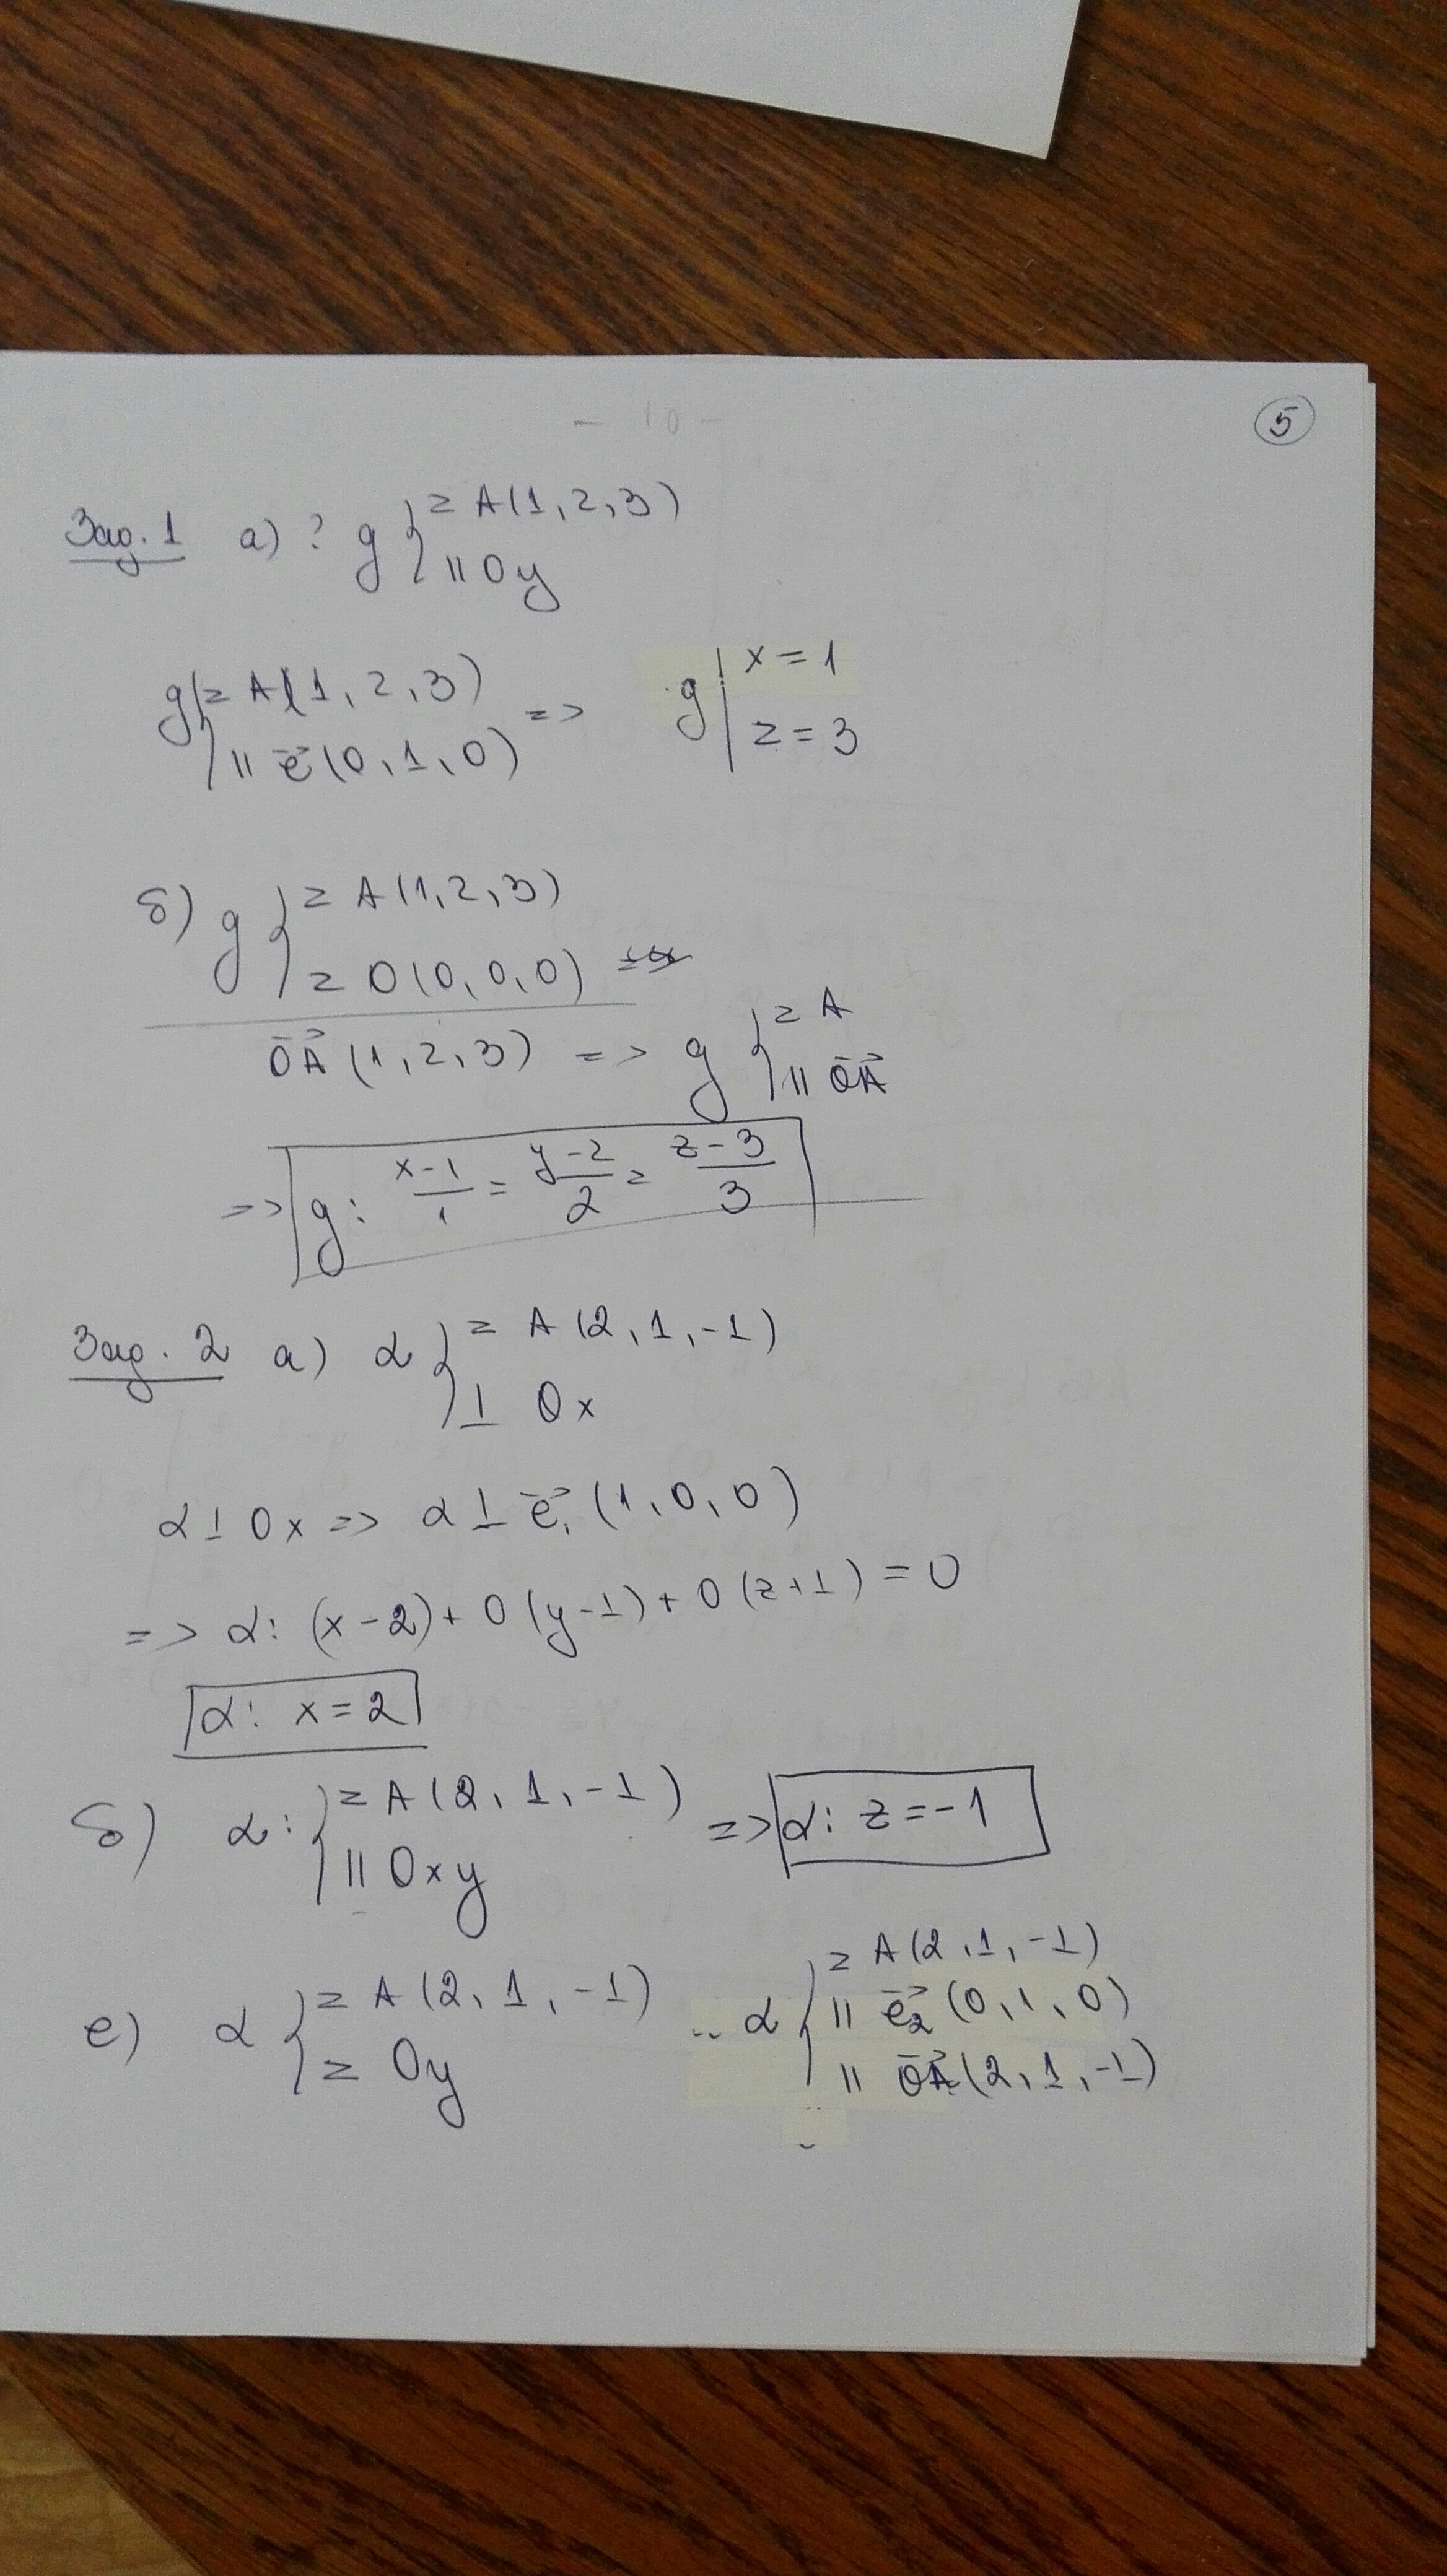 5
Зад. 1 а) ? g { z A(1, 2, 3)
|| Oy
g { z A(1, 2, 3)
|| e⃗ (0, 1, 0) => g | x = 1
z = 3
б) g { z A(1, 2, 3)
z O(0, 0, 0)
OA⃗ (1, 2, 3) => g { z A
|| OA⃗
=> g: x-1/1 = y-2/2 = z-3/3
Зад. 2 а) α { z A(2, 1, -1)
⊥ Ox
α ⊥ Ox => α ⊥ e⃗₁ (1, 0, 0)
=> α: (x-2) + 0(y-1) + 0(z+1) = 0
α: x = 2
б) α: { z A(2, 1, -1) => α: z = -1
|| Oxy
е) α { z A(2, 1, -1)
z Oy
α { z A(2, 1, -1)
|| e⃗₂ (0, 1, 0)
|| OA⃗ (2, 1, -1)